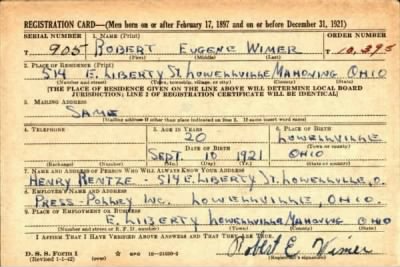 REGISTRATION CARD—(Men born on or after February 17, 1897 and on or before December 31, 1921)
SERIAL NUMBER 1. NAME (Print) ORDER NUMBER
T 905 ROBERT EUGENE WIMER T 10,395
(First) (Middle) (Last)
2. PLACE OF RESIDENCE (Print)
514 E. LIBERTY ST. LOWELLVILLE MAHONING OHIO
(Number and street) (Town, township, village, or city) (County) (State)
[THE PLACE OF RESIDENCE GIVEN ON THE LINE ABOVE WILL DETERMINE LOCAL BOARD
JURISDICTION; LINE 2 OF REGISTRATION CERTIFICATE WILL BE IDENTICAL]
3. MAILING ADDRESS
SAME
[Mailing address if other than place indicated on line 2. If same insert word same]
4. TELEPHONE 5. AGE IN YEARS 6. PLACE OF BIRTH
20 LOWELLVILLE
DATE OF BIRTH (Town or county)
SEPT. 10 1921 OHIO
(Exchange) (Number) (Mo.) (Day) (Yr.) (State or country)
7. NAME AND ADDRESS OF PERSON WHO WILL ALWAYS KNOW YOUR ADDRESS
HENRY RENTZE - 514 E. LIBERTY ST. LOWELLVILLE, O.
8. EMPLOYER'S NAME AND ADDRESS
INC. LOWELLVILLE, OHIO.
9. PLACE OF EMPLOYMENT OR BUSINESS
E. LIBERTY LOWELLVILLE MAHONING OHIO
(Number and street or R. F. D. number) (Town) (County) (State)
I AFFIRM THAT I HAVE VERIFIED ABOVE ANSWERS AND THAT THEY ARE TRUE.
D. S. S. Form 1
(Revised 1-1-42) (over) Robert E. Wimer